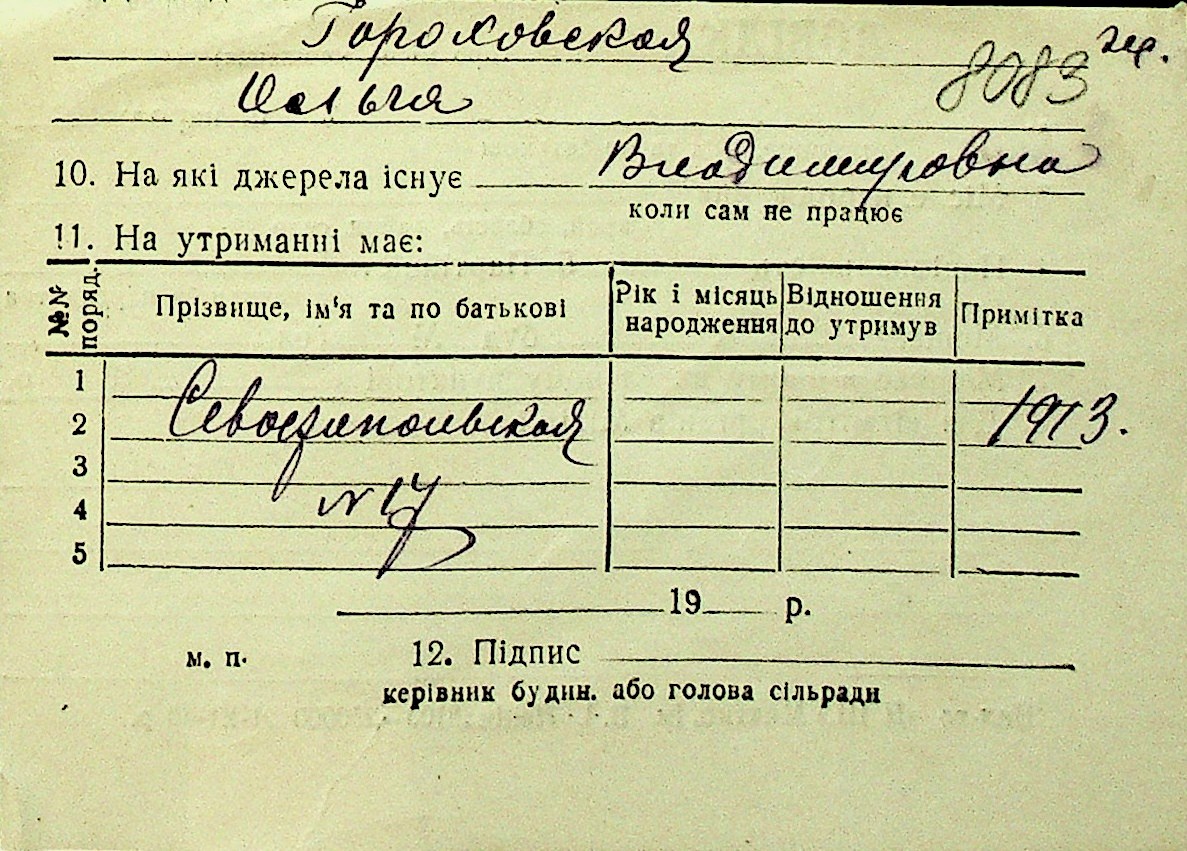 Гороховская
8083 гр.
Ольга
10. На які джерела існує Владимировна
коли сам не працює
11. На утриманні має:
№№ поряд. Прізвище, ім‘я та по батькові Рік і місяць народження Відношення до утримув Примітка
1
2 Севастопольская 1913.
3
4 № 17
5
19 р.
м. п. 12. Підпис
керівник будин. або голова сільради